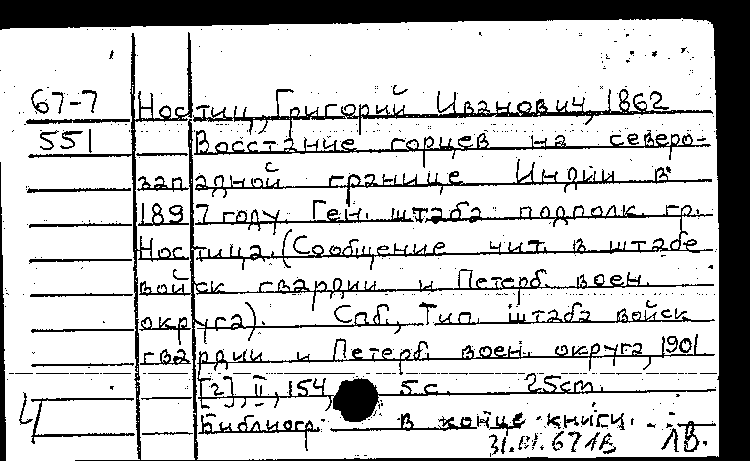 67-7 Ностиц, Григорий Иванович, 1862
551 Восстание горцев на северо-
западной границе Индии в
1897 году. Ген. штаба подполк. гр.
Ностица. (Сообщение чит. в штабе
войск гвардии и Петерб. воен.
округа). Спб., Тип. штаба войск
гвардии и Петерб. воен. округа, 1901
[2], II, 154, 5 с. 25cm.
Библиогр. в конце книги.
4 ЛВ.